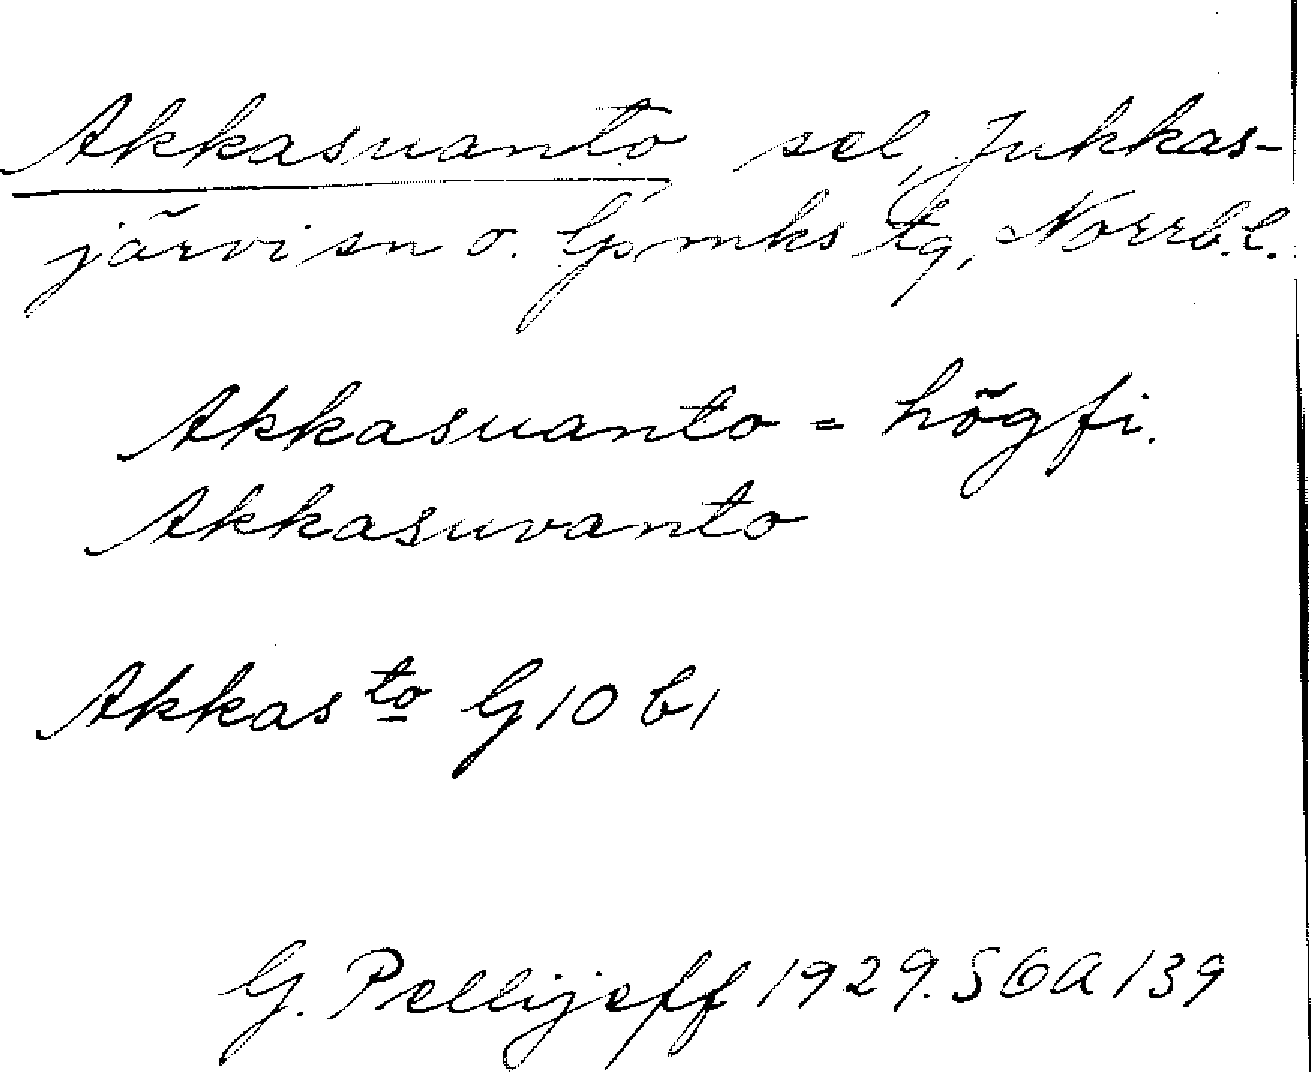 Akkasuanto sel, Jukkas-
järvi sn o. Gr mks tg, Norrb.l.
Akkasuanto = högfi.
Akkasuvanto
Akkas to G 10 b 1
G. Pellijeff 1929. SOA 139